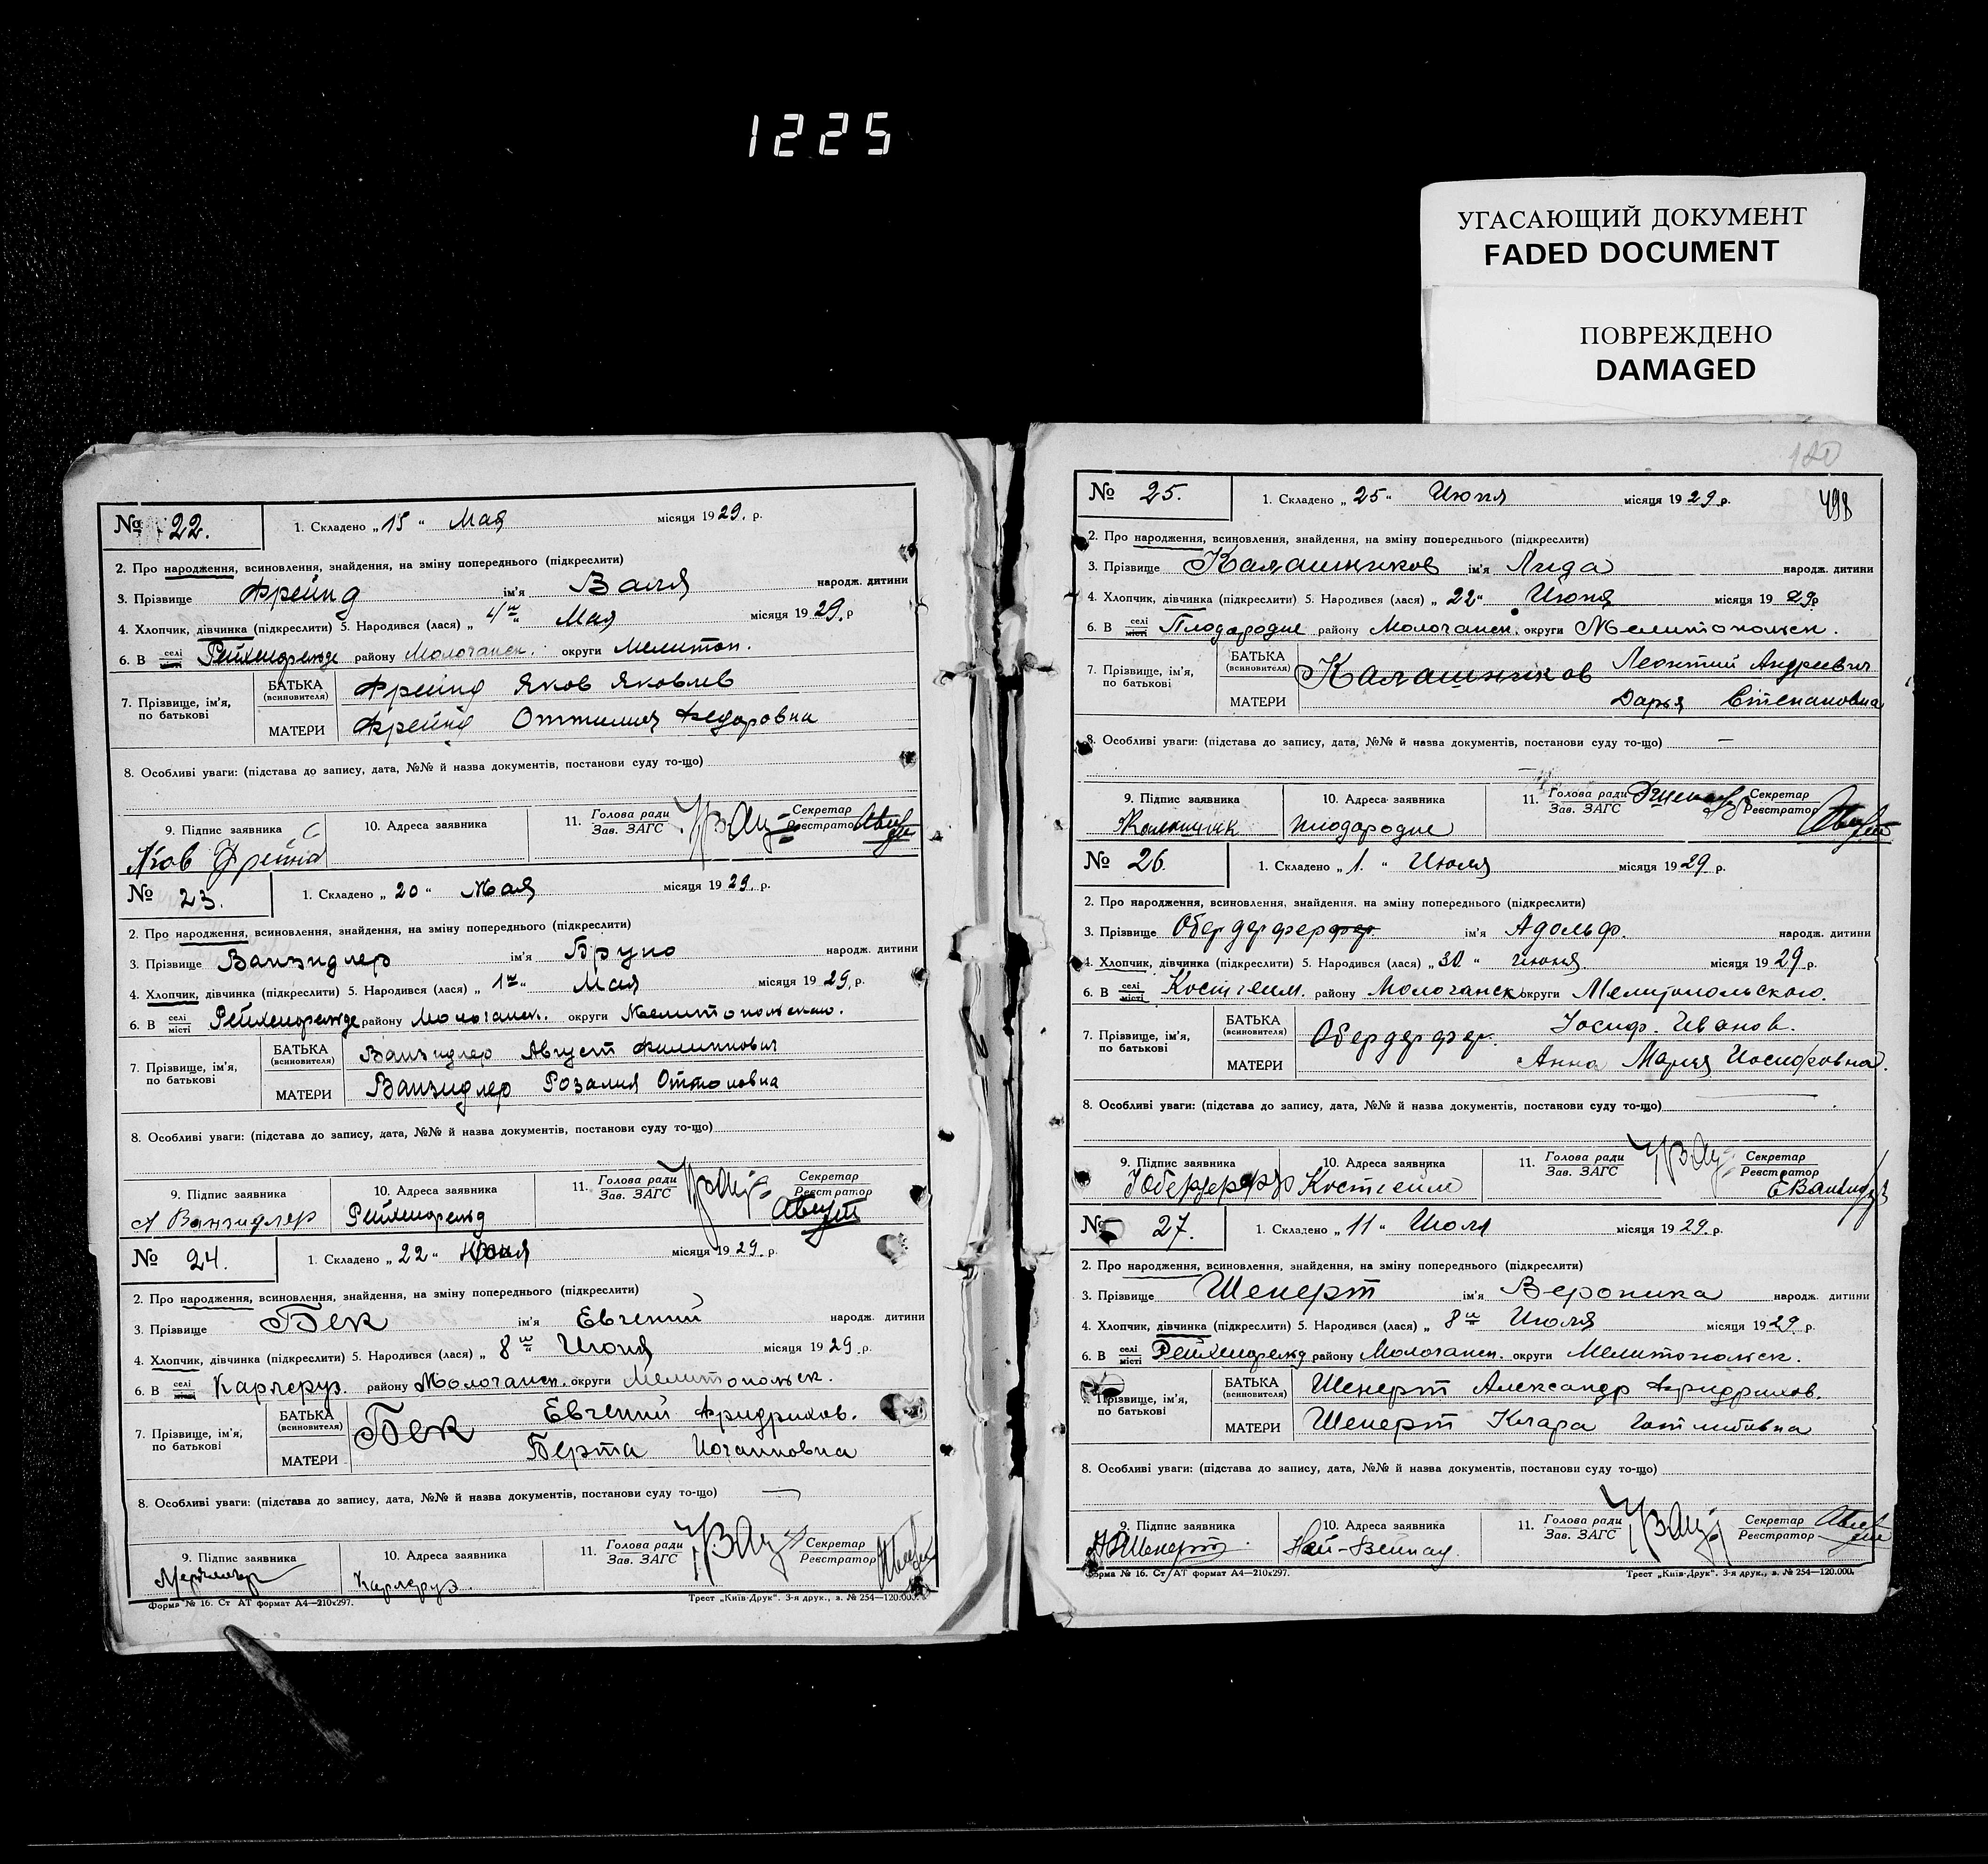 1225
УГАСАЮЩИЙ ДОКУМЕНТ
FADED DOCUMENT
ПОВРЕЖДЕНО
DAMAGED
№ 22. 1. Складено „15“ Мая місяця 1929. р.
2. Про народження, всиновлення, знайдення, на зміну попереднього (підкреслити)
3. Прізвище Фрейнд ім'я Валя народж. дитини
4. Хлопчик, дівчинка (підкреслити) 5. Народився (лася) „ 4го “ Мая місяця 1929. р
6. В селі місті Рейхенфельде району Молочанск. округи Мелитоп.
7. Прізвище, ім'я, по батькові БАТЬКА (всиновителя) Фрейнд Яков Яковлев
МАТЕРИ Фрейнд Оттилия Федоровна
8. Особливі уваги: (підстава до запису, дата, №№ й назва документів, постанови суду то-що)
9. Підпис заявника 10. Адреса заявника 11. Голова ради Зав. ЗАГС Секретар Реєстратор
Яков Фрейнд
№ 23. 1. Складено „ 20 “ Мая місяця 1929. р.
2. Про народження, всиновлення, знайдення, на зміну попереднього (підкреслити)
3. Прізвище Ванзидлер ім'я Бруно народж. дитини
4. Хлопчик, дівчинка (підкреслити) 5. Народився (лася) „ 1го “ Мая місяця 1929. р.
6. В селі місті Рейхенфельде району Молочанск. округи Мелитопольского.
7. Прізвище, ім'я, по батькові БАТЬКА (всиновителя) Ванзидлер Август Филиппович
МАТЕРИ Ванзидлер Розалия Оттоновна
8. Особливі уваги: (підстава до запису, дата, №№ й назва документів, постанови суду то-що)
9. Підпис заявника 10. Адреса заявника 11. Голова ради Зав. ЗАГС Секретар Реєстратор
А Ванзидлер Рейхенфельд
№ 24. 1. Складено „ 22 “ місяця 1929. р.
2. Про народження, всиновлення, знайдення, на зміну попереднього (підкреслити)
3. Прізвище Бек ім'я Евгений народж. дитини
4. Хлопчик, дівчинка (підкреслити) 5. Народився (лася) „ 8го Июня місяця 1929. р.
6. В селі місті Карлсруэ. району Молочанск. округи Мелитопольск.
7. Прізвище, ім'я, по батькові БАТЬКА (всиновителя) Бек Евгений Фридрихов.
МАТЕРИ Берта Иоганновна
8. Особливі уваги: (підстава до запису, дата, №№ й назва документів, постанови суду то-що)
9. Підпис заявника 10. Адреса заявника 11. Голова ради Зав. ЗАГС Секретар Реєстратор
Карлсруэ.
Форма № 16. Ст АТ формат А4—210х297. Трест „Київ-Друк“. 3-я друк., з. № 254—120.000.
120
498
№ 25. 1. Складено „ 25 “ Июня місяця 1929. р.
2. Про народження, всиновлення, знайдення, на зміну попереднього (підкреслити)
3. Прізвище Калашников ім'я Лида народж. дитини
4. Хлопчик, дівчинка (підкреслити) 5. Народився (лася) „ 22 “ Июня місяця 1929р
6. В селі місті Плодородие району Молочанск. округи Мелитопольск.
7. Прізвище, ім'я, по батькові БАТЬКА (всиновителя) Калашников Леонтий Андреевич
МАТЕРИ Дарья Степановна
8. Особливі уваги: (підстава до запису, дата, №№ й назва документів, постанови суду то-що) —
9. Підпис заявника 10. Адреса заявника 11. Голова ради Зав. ЗАГС Секретар Реєстратор
Плодородие
№ 26. 1. Складено „ 1. “ Июля місяця 1929. р.
2. Про народження, всиновлення, знайдення, на зміну попереднього (підкреслити)
3. Прізвище Обердерфер ім'я Адольф. народж. дитини
4. Хлопчик, дівчинка (підкреслити) 5. Народився (лася) „ 30 “ Июня. місяця 1929. р.
6. В селі місті Костгейм. району Молочанск округи Мелитопольского.
7. Прізвище, ім'я, по батькові БАТЬКА (всиновителя) Обердерфер. Іосиф. Иванов.
МАТЕРИ Анна Мария Иосифовна.
8. Особливі уваги: (підстава до запису, дата, №№ й назва документів, постанови суду то-що)
9. Підпис заявника 10. Адреса заявника 11. Голова ради Зав. ЗАГС Секретар Реєстратор
Костгейм
№ 27. 1. Складено „ 11 “ Июля місяця 1929. р.
2. Про народження, всиновлення, знайдення, на зміну попереднього (підкреслити)
3. Прізвище Шенерт ім'я Вероника народж. дитини
4. Хлопчик, дівчинка (підкреслити) 5. Народився (лася) „ 8го Июля місяця 1929. р.
6. В селі місті Рейхенфельд району Молочанск. округи Мелитопольск.
7. Прізвище, ім'я, по батькові БАТЬКА (всиновителя) Шенерт Александр Фридрихов.
МАТЕРИ Шенерт Клара Готлибовна
8. Особливі уваги: (підстава до запису, дата, №№ й назва документів, постанови суду то-що)
9. Підпис заявника 10. Адреса заявника 11. Голова ради Зав. ЗАГС Секретар Реєстратор
Шенерт. Ней-Вейнад.
Форма № 16. Ст АТ формат А4—210х297. Трест „Київ-Друк“. 3-я друк., з. № 254—120.000.